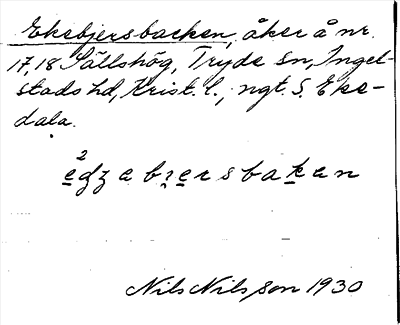 Ekebjersbacken, åker å nr.
17,18 Sällshög, Tryde sn, Ingel-
stads hd, Krist. l., ngt. S. Eke-
dala.
Nils Nilsson 1930